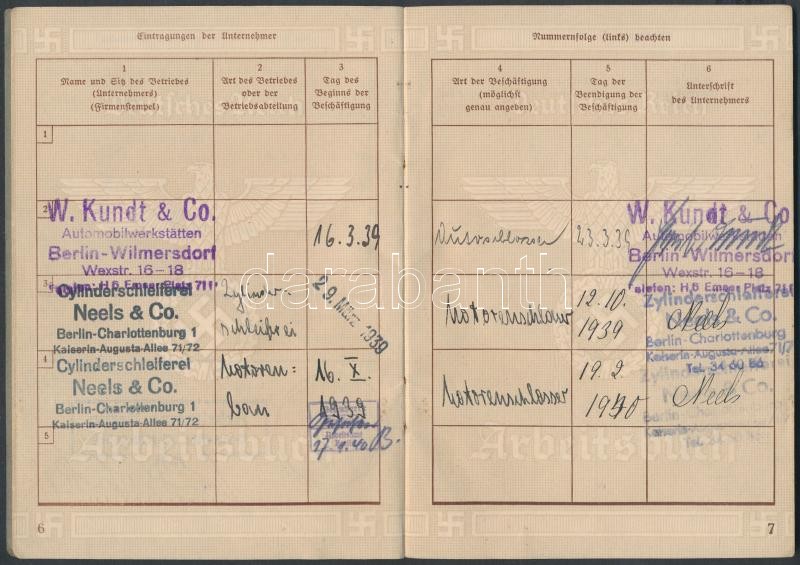 Eintragungen der Unternehmer
1
Name und Sitz des Betriebes
(Unternehmers)
(Firmenstempel)
2
Art des Betriebes
oder der
Betriebsabteilung
3
Tag des
Beginns der
Beschäftigung
1
2
W. Kundt & Co.
Automobilwerkstätten
Berlin-Wilmersdorf
Wexstr. 16-18
Telefon: H 5 Emser Platz 7111
16.3.39
3
Cylinderschleiferei
Neels & Co.
Berlin-Charlottenburg 1
Kaiserin-Augusta-Allee 71/72
Zylinder-
schleiferei
29. März 1939
4
Cylinderschleiferei
Neels & Co.
Berlin-Charlottenburg 1
Kaiserin-Augusta-Allee 71/72
Motoren=
bau
16. X.
1939
5
6
Arbeitsbuch
Nummernfolge (links) beachten
4
Art der Beschäftigung
(möglichst
genau angeben)
5
Tag der
Beendigung der
Beschäftigung
6
Unterschrift
des Unternehmers
Deutsches Reich
Autoschlosser
23.3.39
W. Kundt & Co.
Automobilwerkstätten
Berlin-Wilmersdorf
Wexstr. 16-18
Telefon: H 5 Emser Platz 7111
Motorenschlosser
12.10.
1939
Zylinderschleiferei
Neels & Co.
Berlin-Charlottenburg
Kaiserin-Augusta-Allee 71/72
Tel. 34 60 86
Neels
Motorenschlosser
19.2.
1940
Zylinderschleiferei
Neels & Co.
Berlin-Charlottenburg
Neels
Arbeitsbuch
7
darabanth